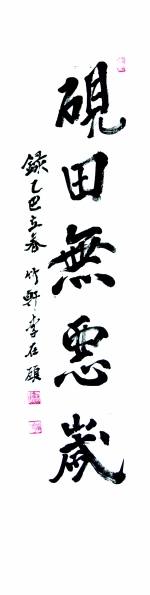 硯田無惡歲
錄乙巳立春 竹軒 李在頤